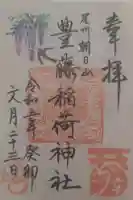 奉拝
尾州朝日山
豊藤稲荷神社
令和五年癸卯
文月二十三日